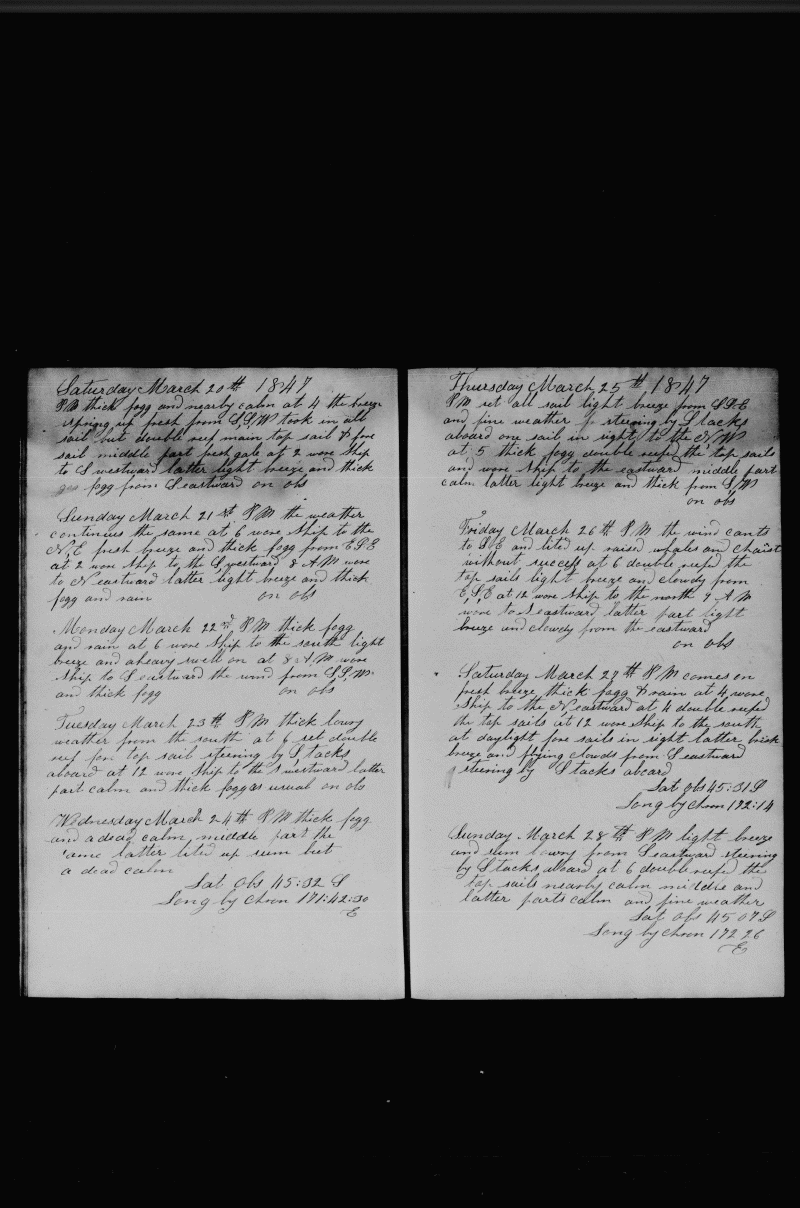 Saturday March 20th 1847
PM thick fogg and nearby calm at 4 the breeze
spring up fresh from S,S,W took in all
sail but double reef main top sail & fore
sail middle part fresh gale at 2 wore ship
to S westward latter light breeze and thick
fogg from S eastward on obs
Sunday March 21st PM the weather
continues the same at 6 wore ship to the
N,E fresh breeze and thick fogg from ESE
at 2 wore ship to the S westward 8 AM wore
to N eastward latter light breeze and thick
fogg and rain on obs
Monday March 22nd PM thick fogg
and rain at 6 wore ship to the south light
breeze and a heavy swell on at 8 A,M wore
ship to S eastward the wind from S,S,W
and thick fogg on obs
Tuesday March 23th PM thick lowry
weather from the south at 6 set double
reef fore top sail steering by S,tacks
aboard at 12 wore ship to the S westward latter
part calm and thick fogg as usual on obs
Wednesday March 24th PM thick fogg
and a dead calm, middle part the
same latter lited up sum but
a dead calm
Lat Obs 45:32 S
Long by chron 171:42:30
E
Thursday March 25th 1847
PM set all sail light breeze from SSE
and fine weather steering by S tacks
aboard one sail in sight to the NW
at 5 thick fogy double reefed the top sails
and wore ship to the eastward middle part
calm latter light breeze and thick from S,W
on obs
Friday March 26th PM the wind cants
to S,E and lited up raised whales and chaist
without success at 6 double reefed the
top sails light breeze and clowdy from
E,S,E at 12 wore ship to the north 9 AM
wore to S eastward latter part light
breeze and clowdy from the eastward
on obs
Saturday March 27th PM comes on
fresh breeze thick fogg & rain at 4 wore
ship to the N,eastward at 4 double reefed
the top sails at 12 wore ship to the south
at daylight fore sails in sight latter brisk
breeze and flying clowds from S eastward
steering by S tacks aboard
Lat obs 45:31 S
Long by chron 172:14
Sunday March 28th PM light breeze
and sum lowry from S eastward steering
by S tacks aboard at 6 double reefed the
top sails nearby calm middle and
latter parts calm and fine weather
Lat obs 45 07 S
Long by chron 172 26
E